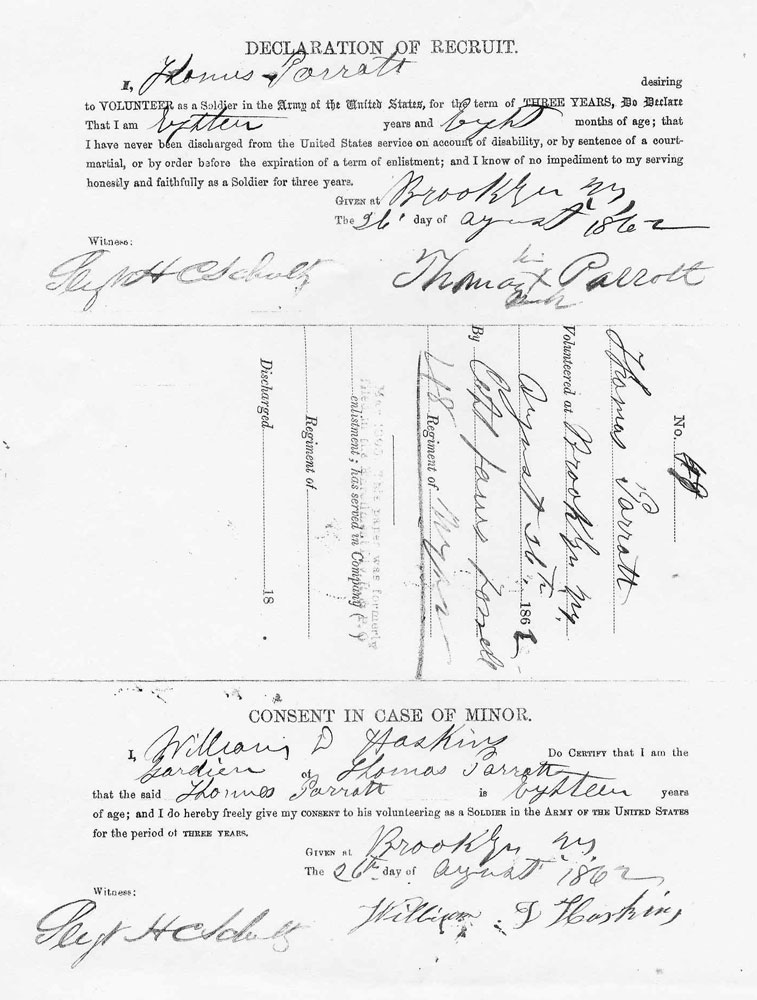 DECLARATION OF RECRUIT.
I, Thomas Parratt desiring
to VOLUNTEER as a Soldier in the Army of the United States, for the term of THREE YEARS, Do Declare
That I am Eyhteen years and Eyght months of age; that
I have never been discharged from the United States service on account of disability, or by sentence of a court-
martial, or by order before the expiration of a term of enlistment; and I know of no impediment to my serving
honestly and faithfully as a Soldier for three years.
GIVEN at Brooklyn Ny,
The 26 day of August 1862
Witness:
H C Schultz
his
Thomas X Parrott
mark
No. 48
Thomas Parratt
Volunteered at Brooklyn Ny,
August 26th 1862
By Capt James
48 Regiment of
enlistment; has served in Company ( )
Regiment of
Discharged 18
CONSENT IN CASE OF MINOR.
I, William D Haskins Do CERTIFY that I am the
Gardien of Thomas Parratt
that the said Thomas Parratt is Eyhteen years
of age; and I do hereby freely give my CONSENT to his volunteering as a SOLDIER in the ARMY OF THE UNITED STATES
for the period of THREE YEARS.
GIVEN at Brooklyn Ny
The 26th day of August 1862
Witness:
H C Schultz
William D Haskins